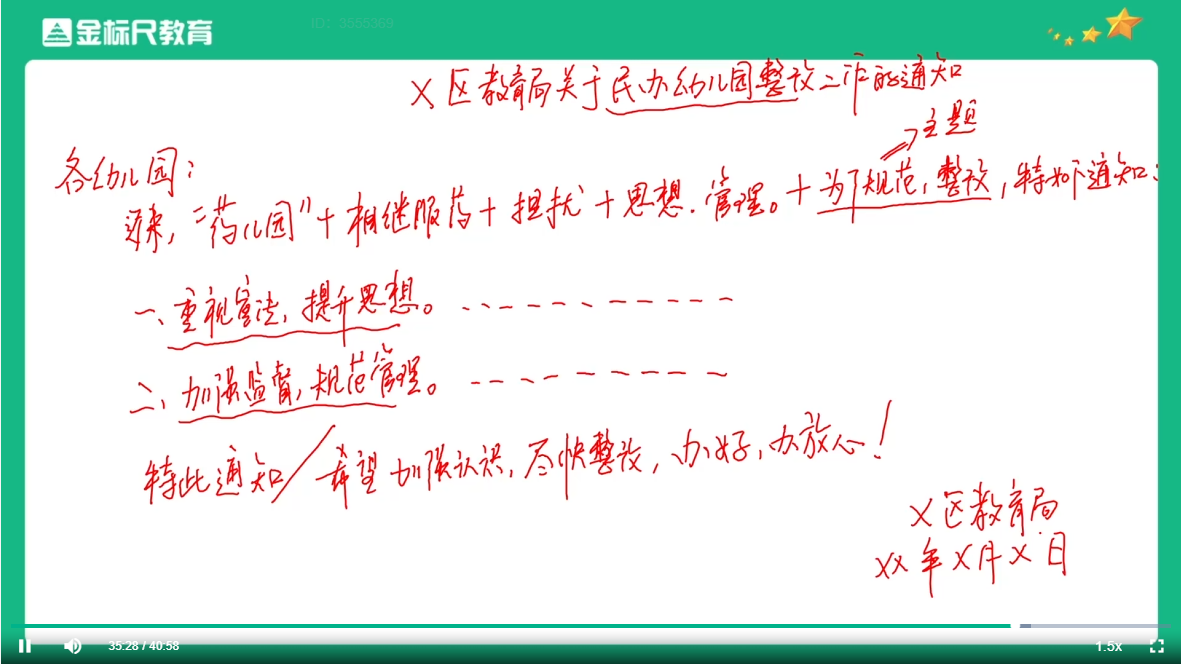 金标尺教育
ID：3555369
X区教育局关于民办幼儿园整改工作的通知
主题
各幼儿园：
近来，“药儿园”+相继服药+担扰+思想.管理。+为了规范，整改，特如下通知：
一、重视宪法，提升思想。
二、加强监督，规范管理。
特此通知/希望加强认识，尽快整改，办好，办放心！
X区教育局
XX年X月X日
35:28 / 40:58
1.5x